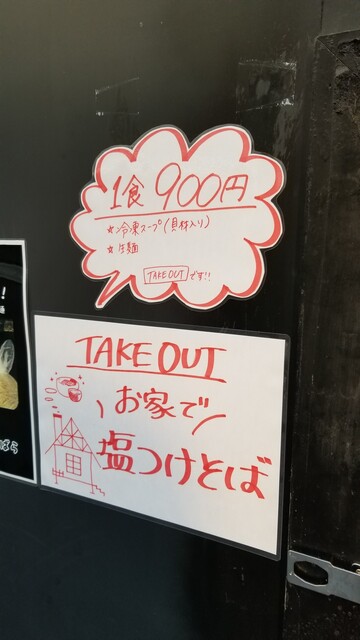 1食 900円
☆冷凍スープ(具材入り)
☆生麺
TAKE OUT です!!
TAKE OUT
\お家で/
塩つけそば